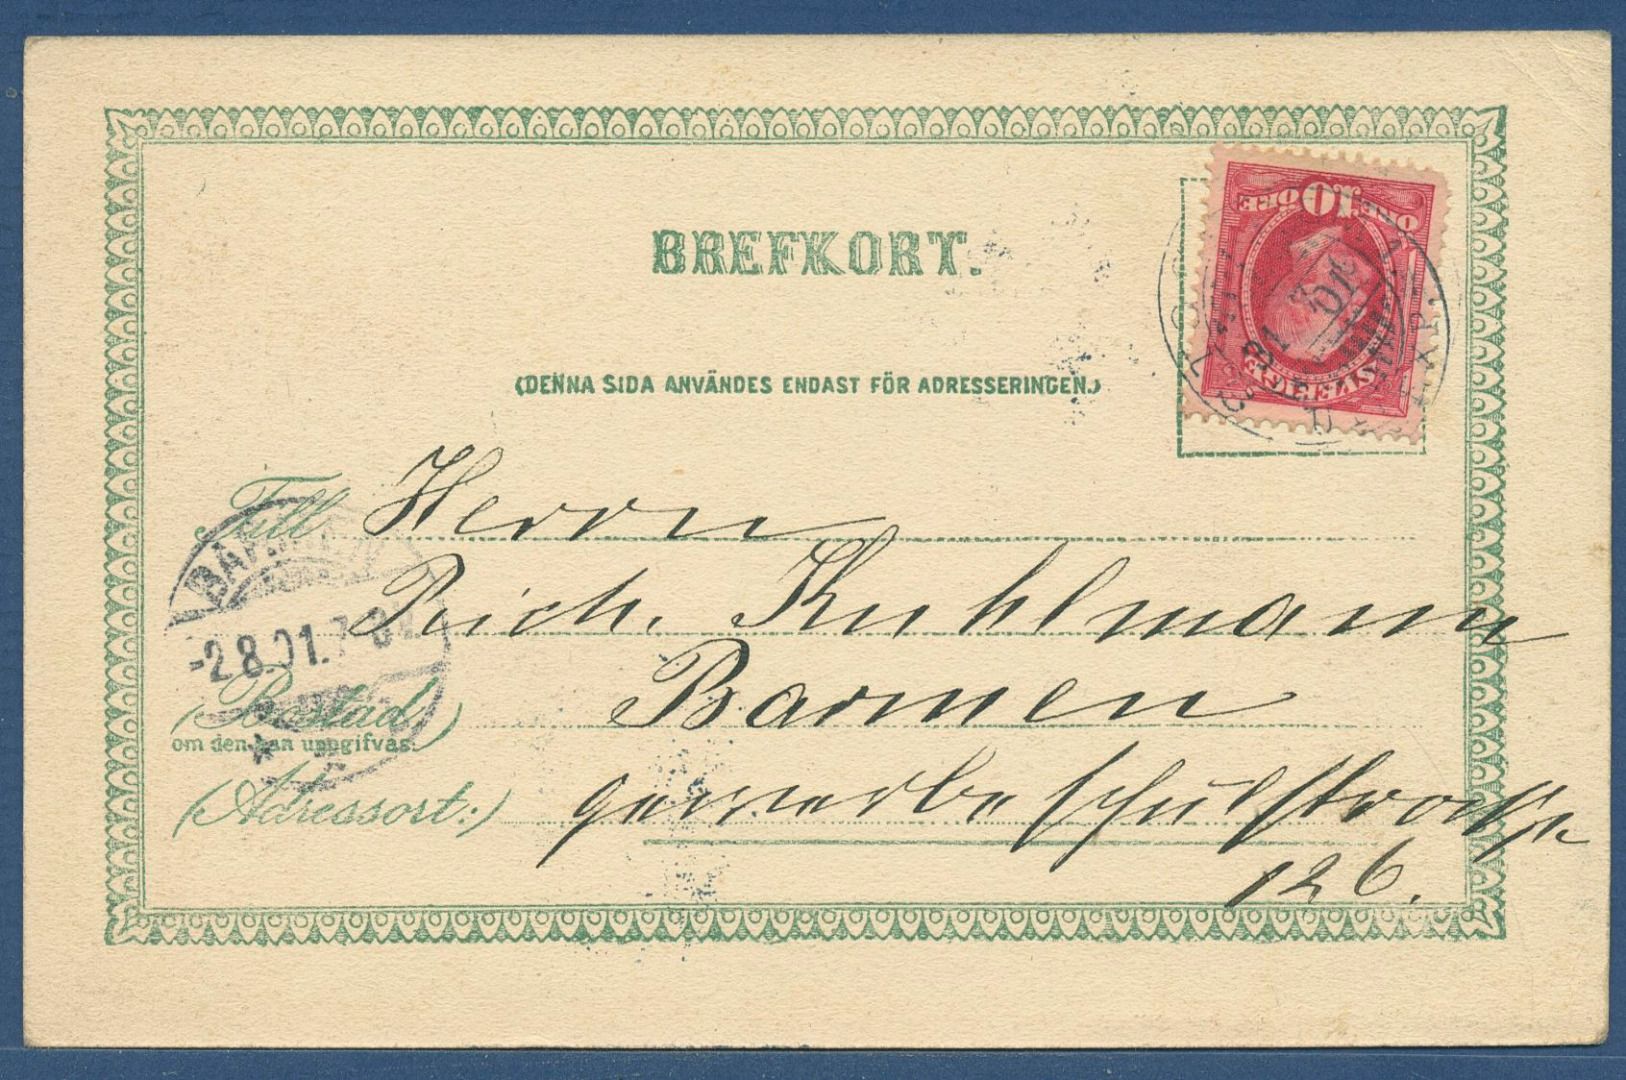 BREFKORT.
(DENNA SIDA ANVÄNDES ENDAST FÖR ADRESSERINGEN.)
10
ÖRE ÖRE
SVERIGE
Till Herrn
Rich. Kuhlmann
BARMEN
-2.8.01.7-8V.
(Bostad
om den kan uppgifvas.)
Barmen
(Adressort:)
Gewerbeschulstrasse
126.